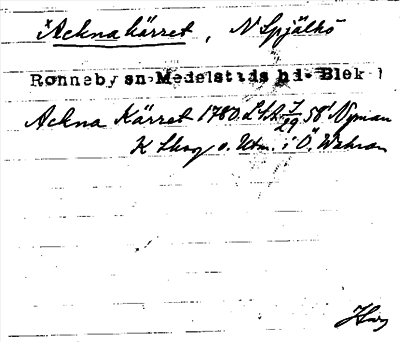 ×Ackna kärret, N Spjälkö
Ronneby sn. Medelstads hd. Blek l
Ackna Kärret 1780. LSA J/29 58¹ Nyman
K Skog o. Utm. i Ö. Wahran